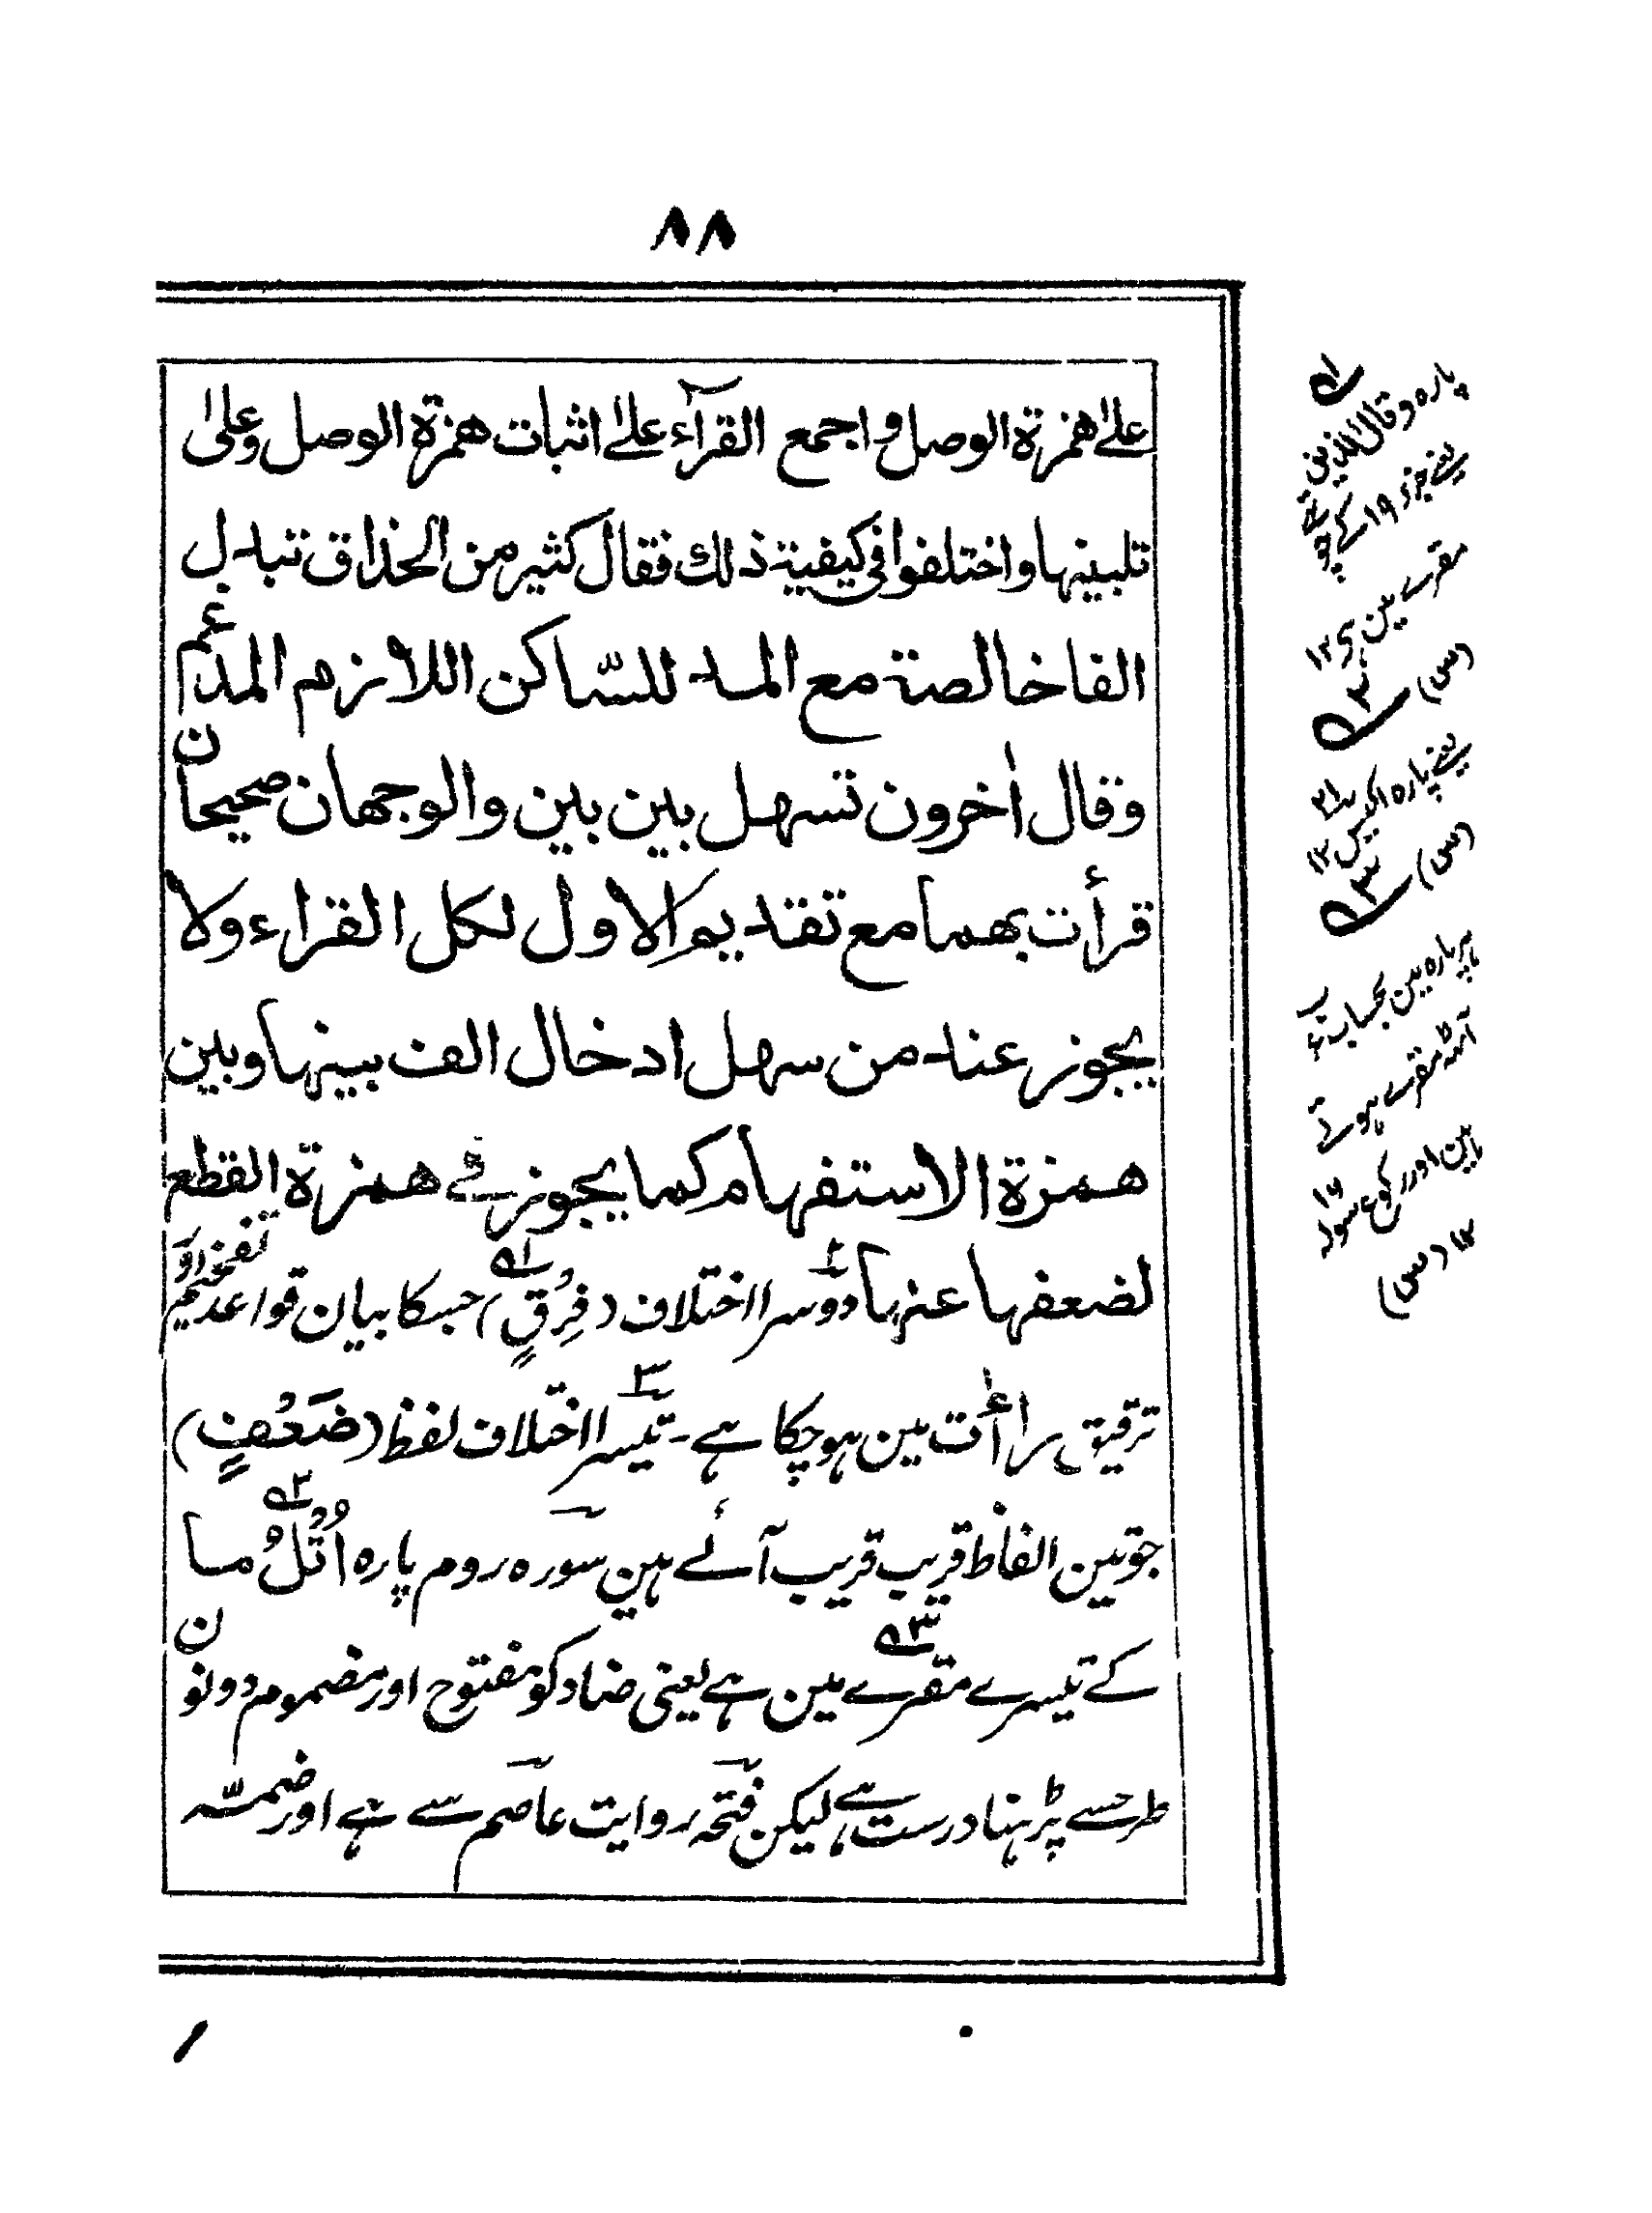 ٨٨
على همزة الوصل واجمع القرآء على اثبات همزة الوصل وعلى
تليينها واختلفوا في كيفية ذلك فقال كثير من الحذاق تبدل
الفا خالصة مع المد للسّاكن اللازم المدغم
وقال اٰخرون تسهل بين بين والوجهان صحيحان
قرأت بهما مع تقديم الاول لكل القراء ولا
يجوز عند من سهل ادخال الف بينها وبين
همزة الاستفهام كما يجوز في همزة القطع
لضعفها عنها دوسرا اختلاف (فِرُقٍ) جسکا بیان قواعد تفخیم و
ترقیق را أت مین ہوچکا ہے - تیسرا اختلاف لفظ (ضَعُفٍ)
جو تین الفاظ قریب قریب آئے ہین سورہ روم پارہ اُتْلُ مَا
کے تیسرے مقرے مین ہے یعنی ضاد کو مفتوح اور مضموم دونون
طرحسے پڑہنا درست ہے لیکن فتحہ روایت عاصم سے ہے اور ضمّہ
لہ۱ پارہ وقال الذین
یعنے جزء ۱۹ کے چوتھے
مقرے مین ہی ۱۲
(س)
لہ۲
یعنے پارہ اکیس ۲۱
۱۲ (س)
لہ۳
ہر پارہ مین بحساب
آٹھ مقرے ہوتے
ہین اور رکوع سولہ ۱۶
۱۲ (س)